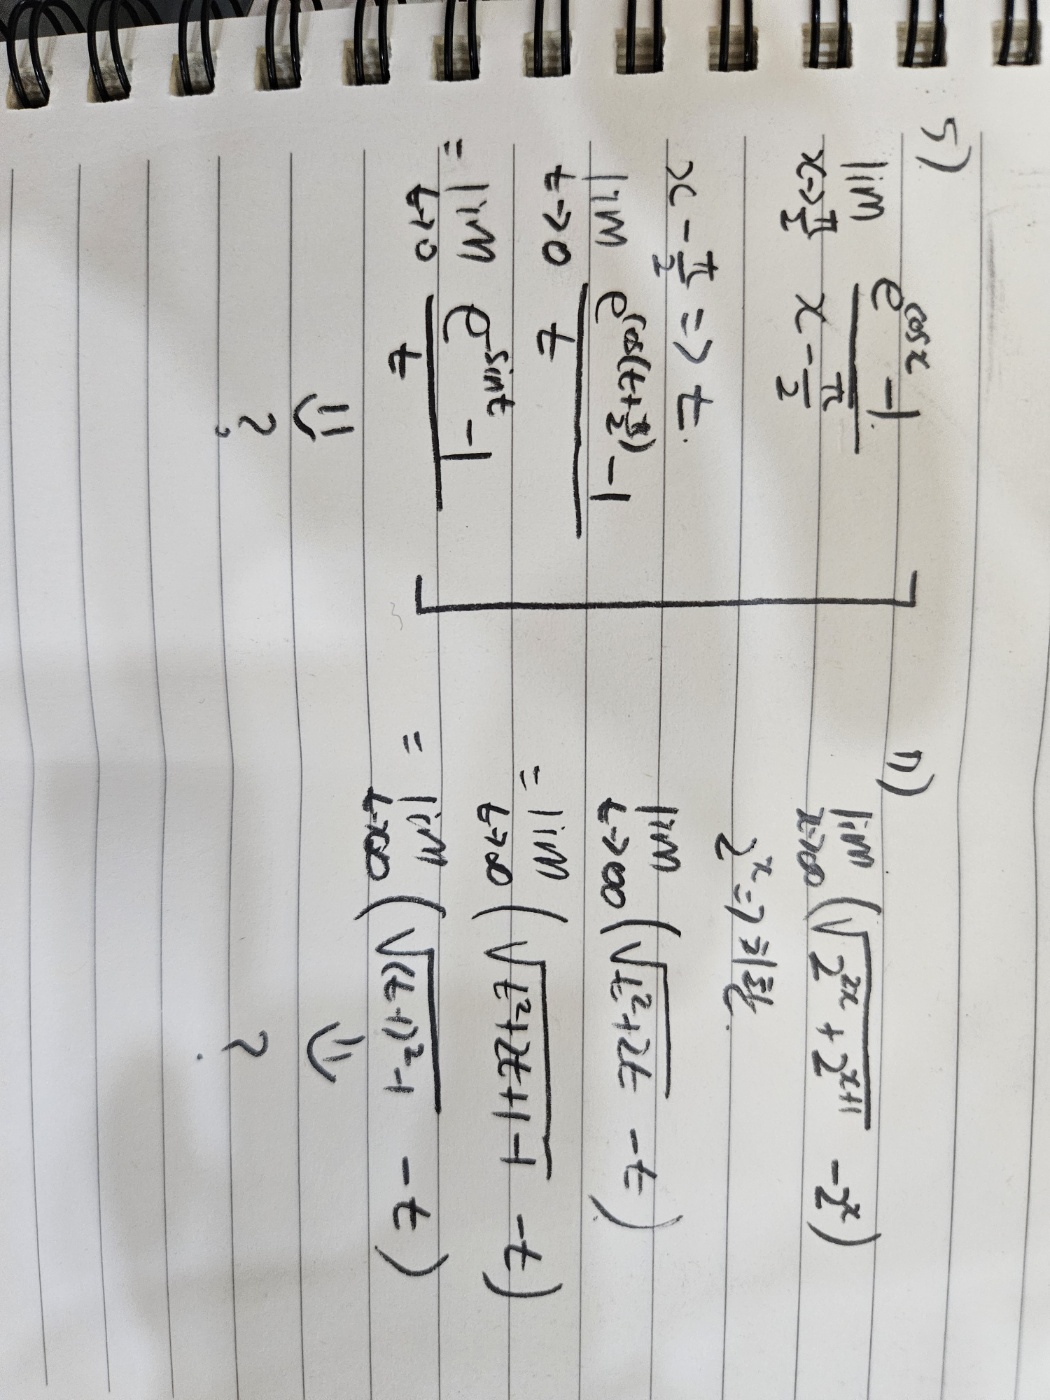 5)
lim x→π/2 (e^cosx -1)/(x - π/2)
x - π/2 => t.
lim t→0 (e^cos(t+π/2) -1)/t
= lim t→0 (e^-sint -1)/t
?
11)
lim x→∞ (√(2^2x + 2^x+1) - 2^x)
2^x => 치환.
lim t→∞ (√(t²+2t) - t)
= lim t→∞ (√(t²+2t+1-1) - t)
= lim t→∞ (√((t+1)²-1) - t)
?